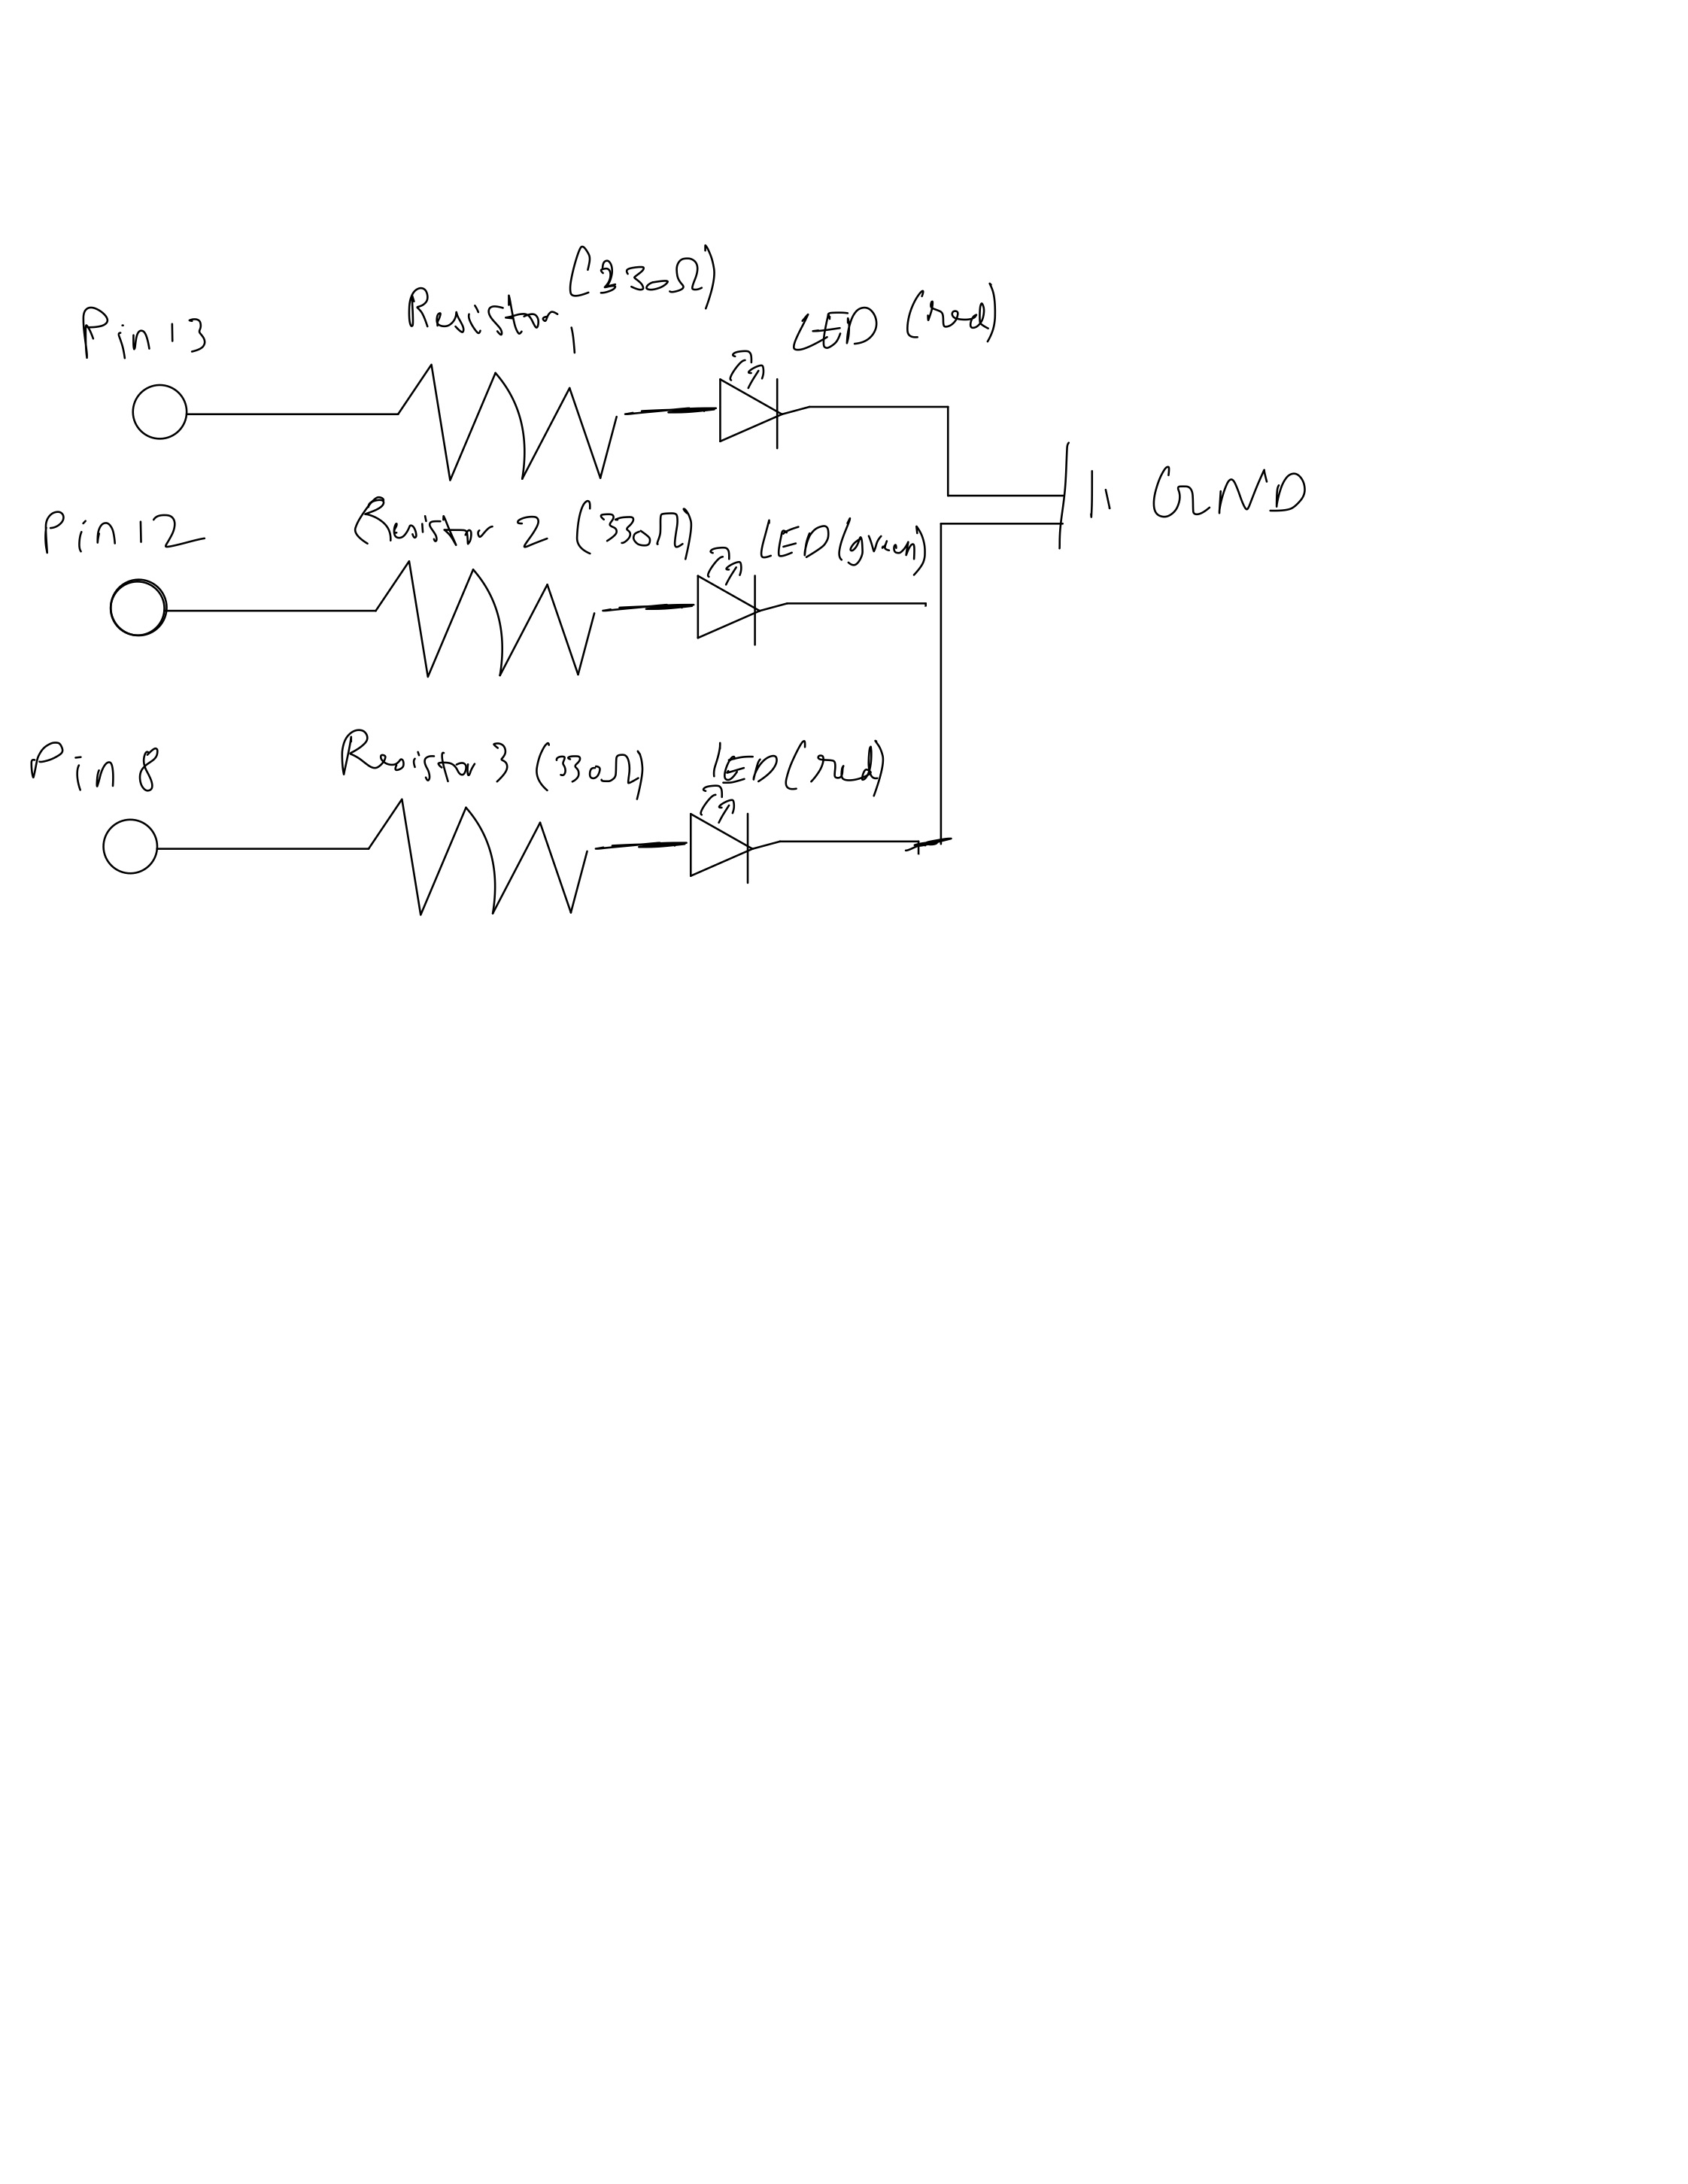 Pin 13 Resistor 1 (330Ω) LED (red)
GND
Pin 12 Resistor 2 (330Ω) LED (green)
Pin 8 Resistor 3 (330Ω) LED (red)